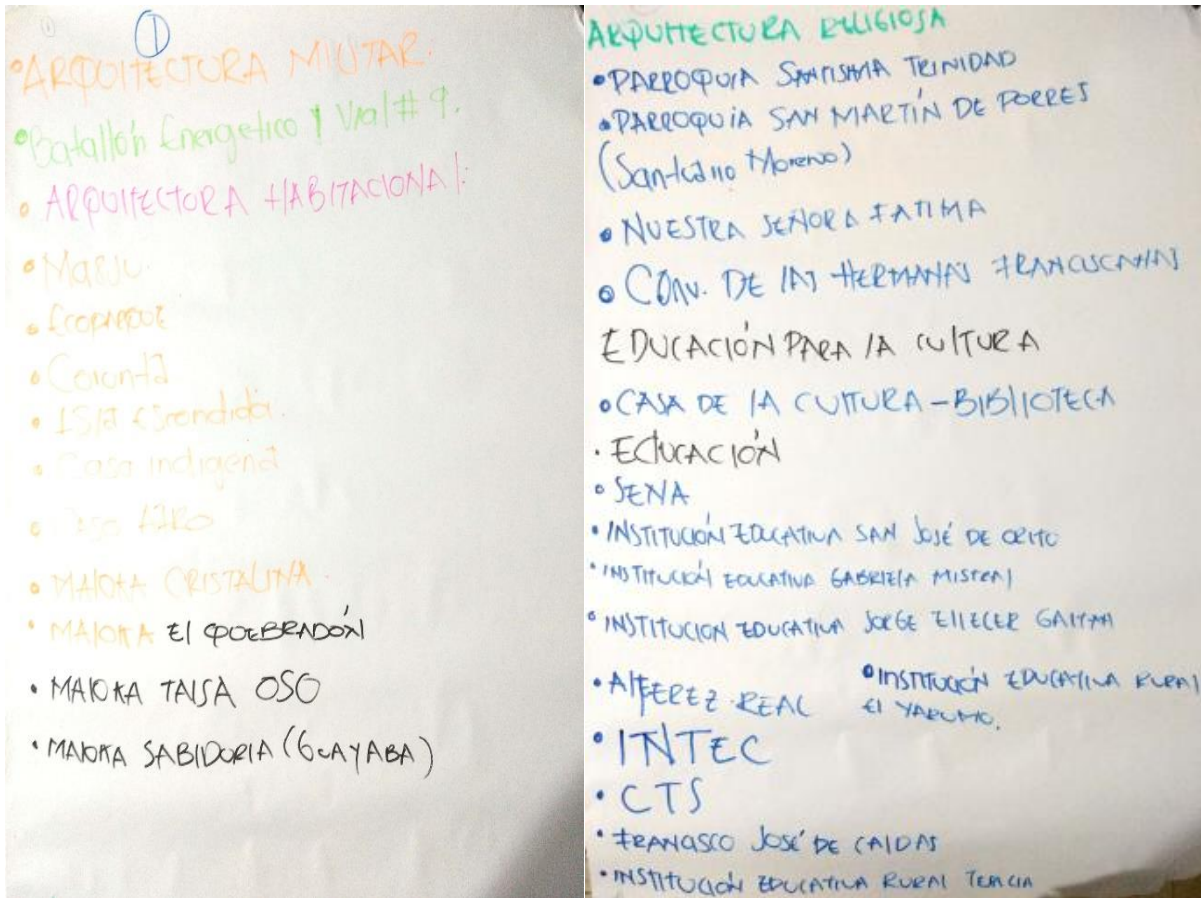 1
•ARQUITECTURA MILITAR.
•Batallón Energetico y Vial # 9.
• ARQUITECTURA HABITACIONAL:
•
• ECOPARQUE
•
• ISla Escondida.
• Casa indigena
• Casa
• MALOKA CRISTALINA.
• MALOKA El QUEBRADÓN
• MALOKA TAISA OSO
• MALOKA SABIDURIA (GUAYABA)
ARQUITECTURA RELIGIOSA
•PARROQUIA SANTISIMA TRINIDAD
•PARROQUIA SAN MARTÍN DE PORRES
( Moreno)
• NUESTRA SEÑORA FATIMA
• CONV. DE lAS HERMANAS FRANCISCANAS
EDUCACIÓN PARA lA CUlTURA
•CASA DE lA CUlTURA - BIBlIOTECA
• EDUCACIÓN
• SENA
• INSTITUCIÓN EDUCATIVA SAN JOSÉ DE ORITO
• INSTITUCIÓN EDUCATIVA GABRIElA MISTRAl
• INSTITUCION EDUCATIVA JORGE ElIECER GAITAN
• AlFEREZ REAL
• INSTITUCIÓN EDUCATIVA RURAl
El YARUMO.
• INTEC
• CTS
• FRANCISCO JOSÉ DE CAlDAS
• INSTITUCIÓN EDUCATIVA RURAl